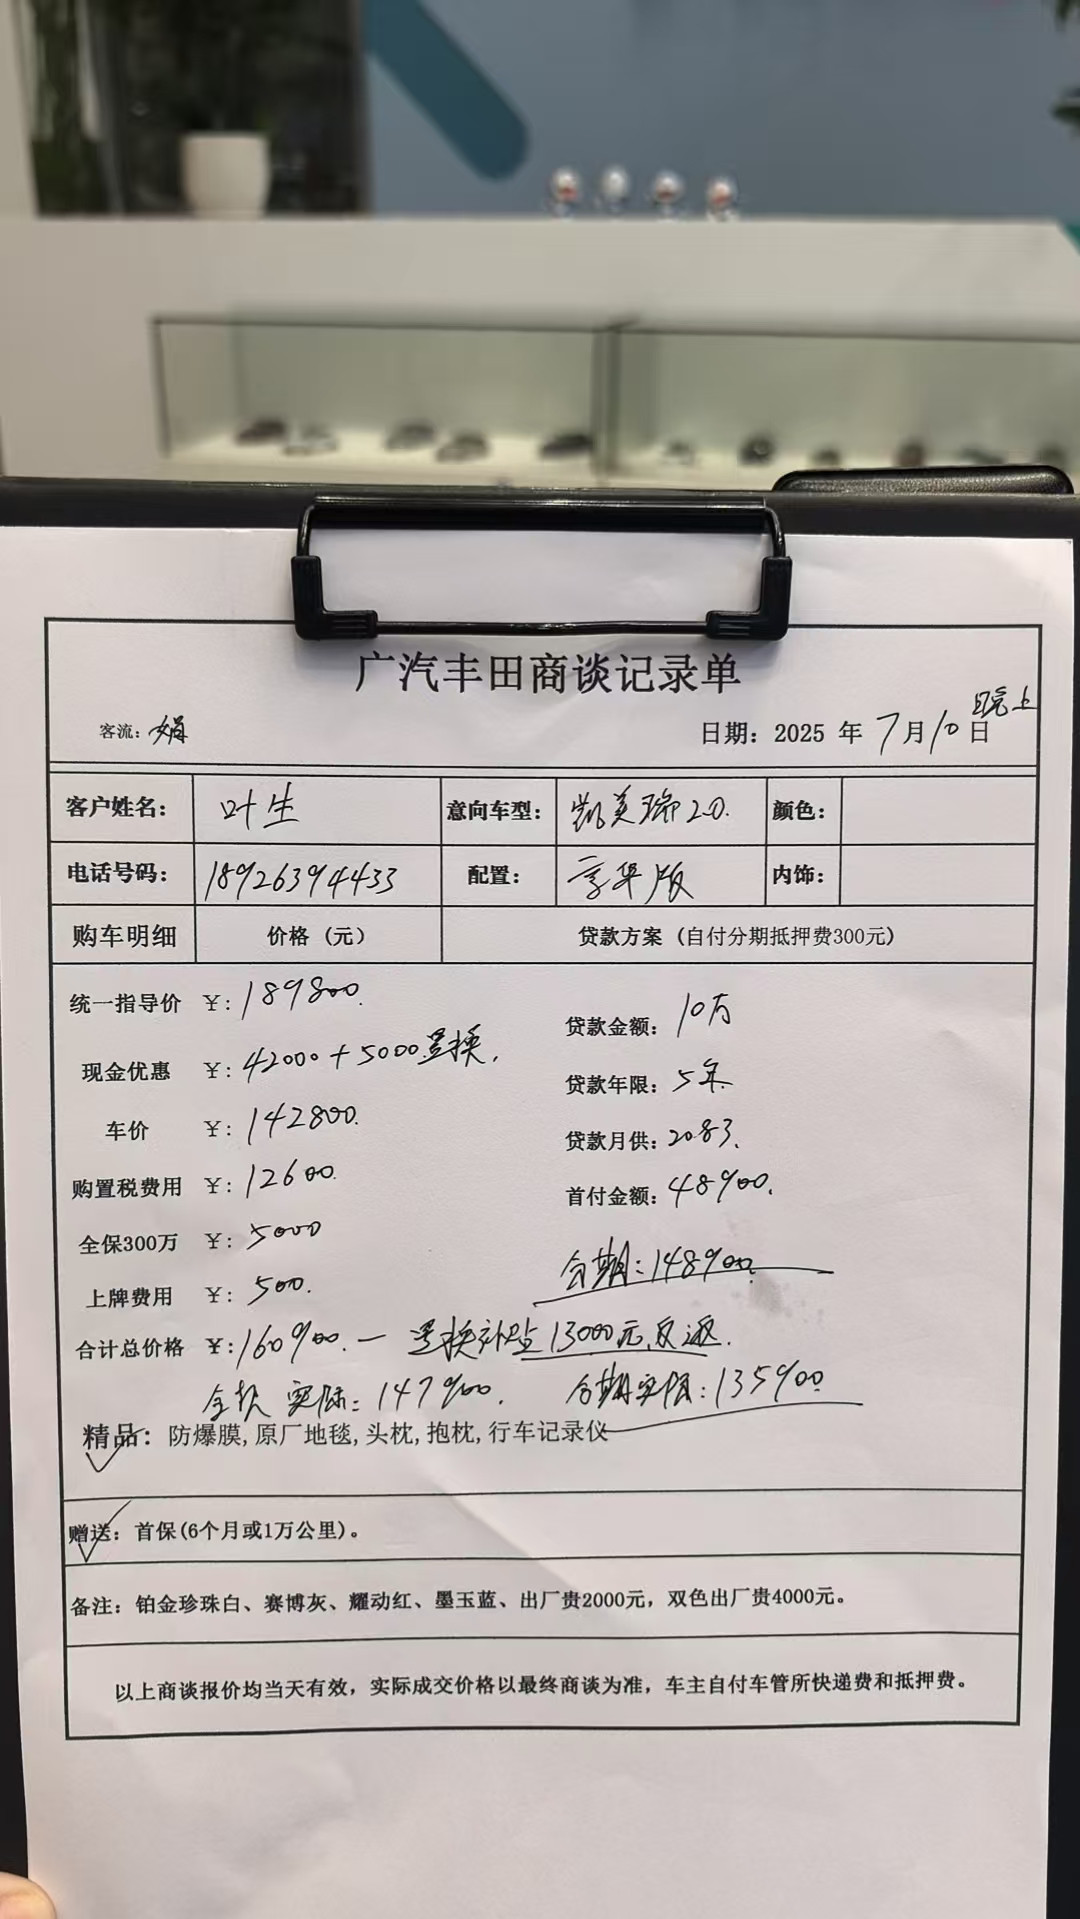 广汽丰田商谈记录单
客流：娟
日期：2025 年 7月10日 晚上
客户姓名： 叶生 意向车型： 凯美瑞2.0. 颜色：
电话号码： 18926394433 配置： 豪华版 内饰：
购车明细 价格（元） 贷款方案（自付分期抵押费300元）
统一指导价 ￥: 189800.
贷款金额： 10万
现金优惠 ￥: 42000+5000置换.
贷款年限： 5年
车价 ￥: 142800.
贷款月供： 2083.
购置税费用 ￥: 12600.
首付金额： 48900.
全保300万 ￥: 5000
分期：148900.
上牌费用 ￥: 500.
合计总价格 ￥: 160900. — 置换补贴13000元反返.
全款实际：147900. 分期实际：135900
精品：防爆膜,原厂地毯,头枕,抱枕,行车记录仪
赠送：首保(6个月或1万公里)。
备注：铂金珍珠白、赛博灰、耀动红、墨玉蓝、出厂贵2000元，双色出厂贵4000元。
以上商谈报价均当天有效，实际成交价格以最终商谈为准，车主自付车管所快递费和抵押费。